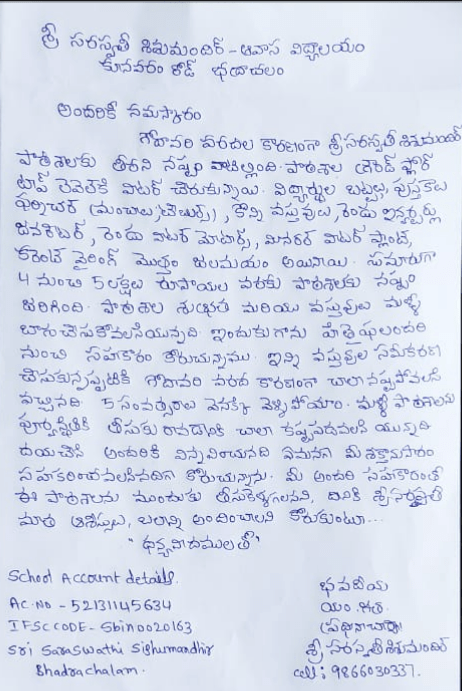 శ్రీ సరస్వతీ శిశుమందిర్ - ఆవాస విద్యాలయం
కూనవరం రోడ్ భద్రాచలం
అందరికీ నమస్కారం
గోదావరి వరదల కారణంగా శ్రీ సరస్వతీ శిశుమందిర్
పాఠశాలకు తీరని నష్టం వాటిల్లింది. పాఠశాల గ్రౌండ్ ఫ్లోర్
టాప్ లెవెల్‌కి వాటర్ చేరుకున్నాయి. విద్యార్థుల బట్టలు, పుస్తకాలు
ఫర్నిచర్ (మంచాలు, టేబుల్స్), కొన్ని వస్తువులు, రెండు ఇన్వర్టర్లు
జనరేటర్, రెండు వాటర్ మోటార్స్, మినరల్ వాటర్ ప్లాంట్,
కరెంట్ వైరింగ్ మొత్తం జలమయం అయినాయి. సుమారుగా
4 నుంచి 5 లక్షల రూపాయల వరకు పాఠశాలకు నష్టం
జరిగింది. పాఠశాల శుభ్రత మరియు వస్తువులు మళ్ళీ
బాగుచేసుకోవలసియున్నది. ఇందుకుగాను హితైషులందరి
నుంచి సహకారం కోరుచున్నము. ఇన్ని వస్తువుల సమీకరణ
చేసుకున్నప్పటికీ గోదావరి వరద కారణంగా చాలా నష్టపోవలసి
వచ్చినది. 5 సంవత్సరాలు వెనక్కి వెళ్ళిపోయాం. మళ్ళీ పాఠశాలను
పూర్వస్థితికి తీసుకు రావడానికి చాలా కష్టపడవలసి యున్నది
దయచేసి అందరికీ విన్నవించునది ఏమనగా మీ శక్తానుసారం
సహకరించవలసినదిగా కోరుచున్నాను. మీ అందరి సహకారంతో
ఈ పాఠశాలను ముందుకు తీసుకెళ్ళగలనని, దానికి శ్రీ సరస్వతీ
మాత ఆశీస్సులు, బలాన్ని అందించాలని కోరుకుంటూ...
"ధన్యవాదములతో"
School Account details.
AC.No - 52131145634
IFSC CODE - Sbin0020163
Sri Saraswathi Sishumandhir
Bhadrachalam.
భవదీయ
యం.
(ప్రధానాచార్యా)
శ్రీ సరస్వతీ శిశుమందిర్
cell: 9866030337.